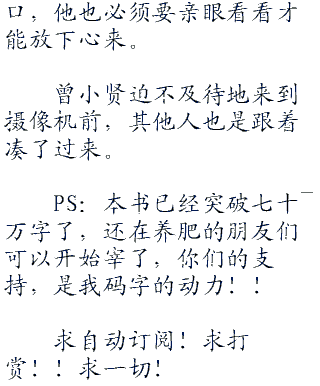 口，他也必须要亲眼看看才
能放下心来。
曾小贤迫不及待地来到
摄像机前，其他人也是跟着
凑了过来。
PS：本书已经突破七十
万字了，还在养肥的朋友们
可以开始宰了，你们的支
持，是我码字的动力！！
求自动订阅！求打
赏！！求一切！